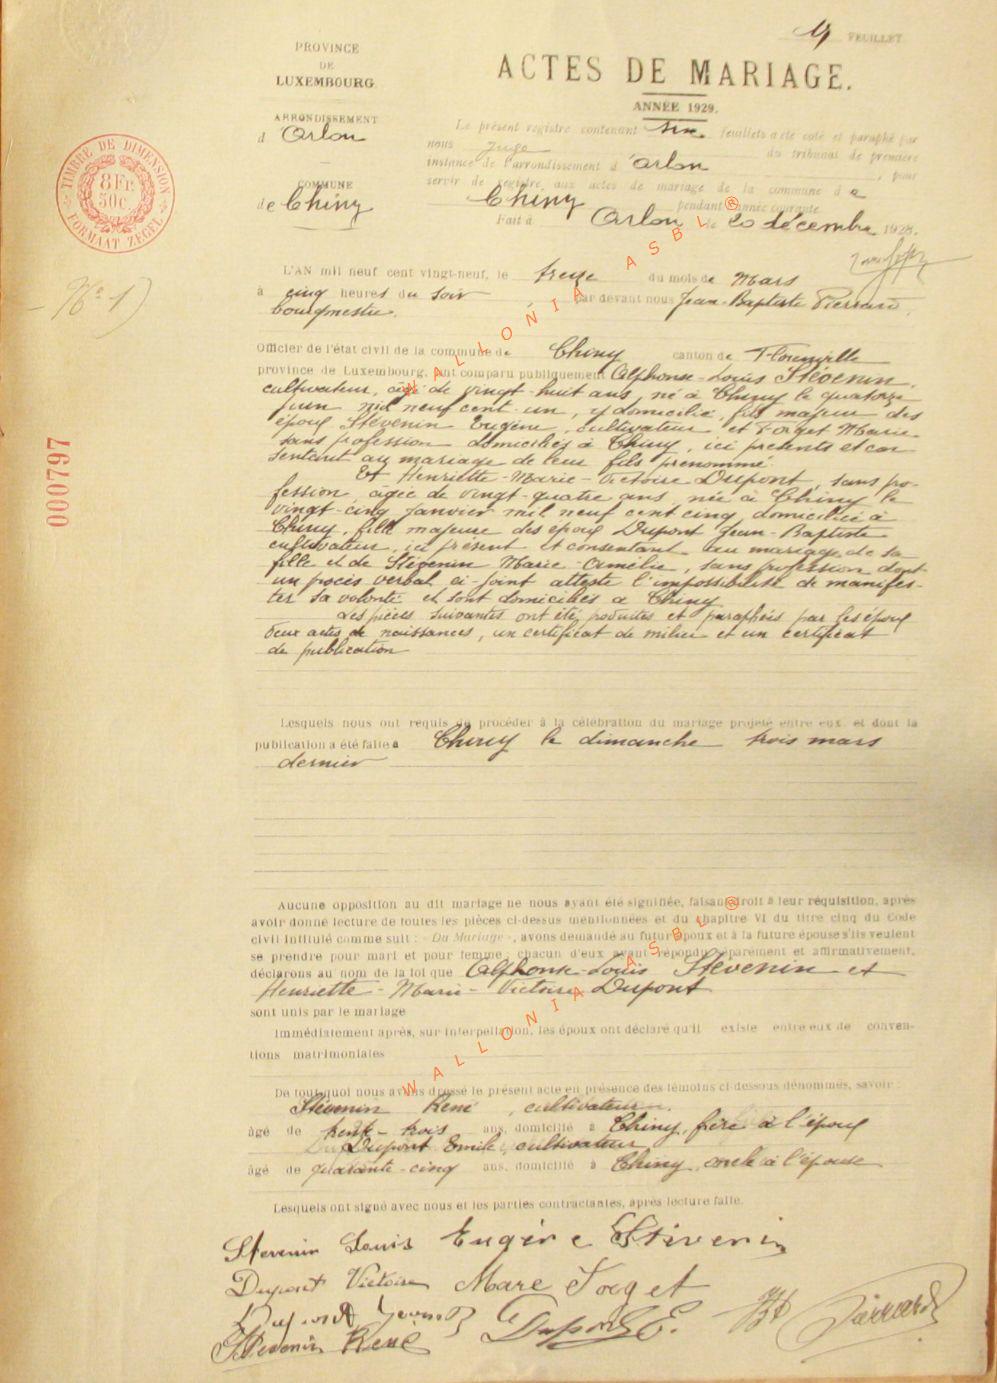 FEUILLET
PROVINCE
DE
LUXEMBOURG
ACTES DE MARIAGE.
ANNÉE 1929.
ARRONDISSEMENT
d'Arlon
Le présent registre contenant six feuillets a été coté et paraphé par
nous Juge du tribunal de première
instance de l'arrondissement d'Arlon, pour
servir de registre aux actes de mariage de la commune de
COMMUNE
de Chiny
Chiny pendant l'année courante
Fait à Arlon le 20 décembre 1928.
TIMBRE DE DIMENSION
8 Fr.
50 c.
FORMAAT ZEGEL
N° 1)
L'AN mil neuf cent vingt-neuf, le treize du mois de Mars
à cinq heures du soir, par devant nous Jean-Baptiste Pierrard,
bourgmestre.
Officier de l'état civil de la commune de Chiny canton de Florenville
province de Luxembourg, ont comparu publiquement Alphonse-Louis Stévenin,
cultivateur, âgé de vingt-huit ans, né à Chiny le quatorze
juin mil neuf cent un, y domicilié, fils majeur des
époux Stévenin Eugène, cultivateur et Forget Marie
sans profession domiciliés à Chiny, ici présents et con
sentant au mariage de leur fils prénommé.
Et Henriette-Marie-Victoire Dupont, sans pro-
fession, âgée de vingt-quatre ans, née à Chiny le
vingt-cinq janvier mil neuf cent cinq domiciliée à
Chiny, fille majeure des époux Dupont Jean-Baptiste
cultivateur, ici présent et consentant au mariage de sa
fille et de Stévenin Marie-Amélie, sans profession dont
un procès verbal ci-joint atteste l'impossibilité de manifes-
ter sa volonté et sont domiciliés à Chiny
Les pièces suivantes ont été produites et paraphées par les époux
deux actes de naissances, un certificat de milice et un certificat
de publication
000797
Lesquels nous ont requis de procéder à la célébration du mariage projeté entre eux, et dont la
publication a été faite à Chiny le dimanche trois mars
dernier
Aucune opposition au dit mariage ne nous ayant été signifiée, faisant droit à leur réquisition, après
avoir donné lecture de toutes les pièces ci-dessus mentionnées et du chapitre VI du titre cinq du Code
civil intitulé comme suit : «Du Mariage», avons demandé au futur époux et à la future épouse s'ils veulent
se prendre pour mari et pour femme; chacun d'eux ayant répondu séparément et affirmativement,
déclarons au nom de la loi que Alphonse-Louis Stévenin et
Henriette-Marie-Victoire Dupont
sont unis par le mariage
Immédiatement après, sur interpellation, les époux ont déclaré qu'il existe entre eux de conven-
tions matrimoniales
De tout quoi nous avons dressé le présent acte en présence des témoins ci-dessous dénommés, savoir
Stévenin René, cultivateur,
âgé de trente-trois ans, domicilié à Chiny, frère à l'époux
Dupont Emile, cultivateur
âgé de quarante-cinq ans, domicilié à Chiny, oncle à l'épouse
Lesquels ont signé avec nous et les parties contractantes, après lecture faite.
Stevenin Louis Eugène Stévenin
Dupont Victoire Marie Forget
Stevenin René Dupont E. Pierrard
WALLONIA ASBL ®
WALLONIA ASBL ®